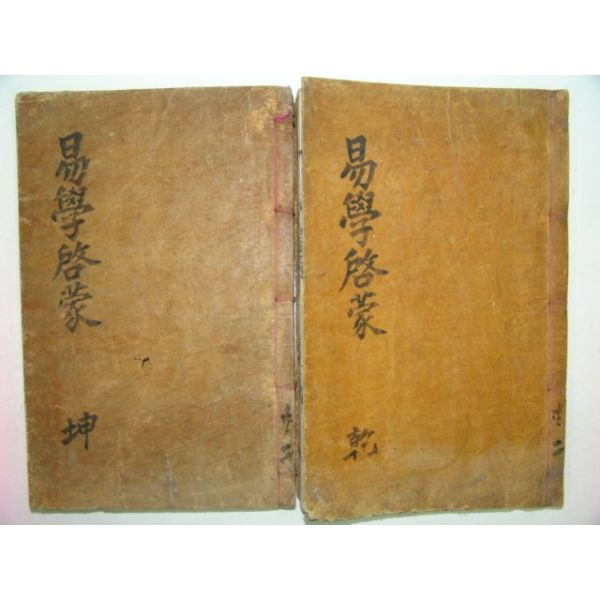 易學啓蒙
乾
共二
易學啓蒙
坤
共二